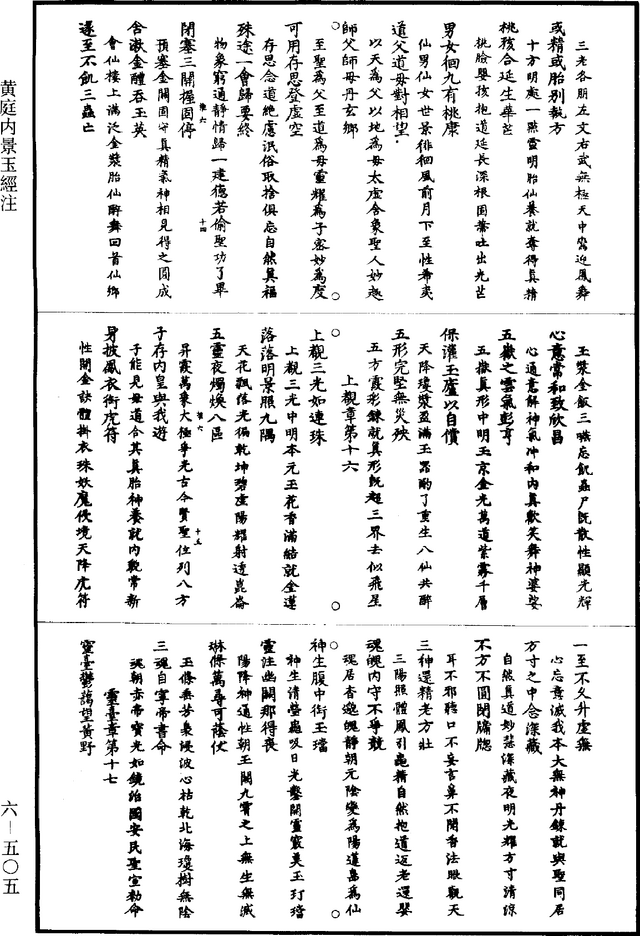 三老各朋左文右武無極天中鸞迎鳳舞
或精或胎別執方
十方明處一點靈明胎仙養就奪得真精
桃孩合延生華芒
桃臉嬰孩抱道延長深根固蒂吐出光芒
男女徊九有桃康
仙男仙女世景徘徊風前月下至性希夷
道父道母對相望
以天為父以地為母太虛含象聖人妙趣
師父師母丹玄鄉
至聖為父至道為母靈耀為子容妙為度
可用存思登虛空
存思念道絕慮泯俗取捨俱忘自然真福
殊途一會歸要終
物象窮通靜情歸一建德若偷聖功了畢
閉塞三關握固停
預塞金關固守真精氣神相見得之圓成
含漱金醴吞玉英
會仙樓上滿泛金漿胎仙醉舞回首仙鄉
遂至不飢三蟲亡
玉漿金飯三嚥忘飢蟲尸既散性顯光輝
心意常和致欣昌
心通意解神氣冲和內真歡笑舞神婆娑
五嶽之雲氣彭亨
五嶽真形中明玉京金光萬道紫霧千層
保灌玉廬以自償
天降瓊漿盈滿玉器酌了重生八仙共醉
五形完堅無災殃
五方霞彩鍊就真形既超三界去似飛星
上覩章第十六
上覩三光如連珠
上覩三光中明本元玉花香滿結就金蓮
落落明景照九隅
天花飄落光徧乾坤碧虛陽耀射透崑崙
五靈夜燭煥八區
昇霞萬乘大極爭光古今賢聖位列八方
子存內皇與我遊
子能見母道合其真胎神養就內觀常新
身披鳳衣銜虎符
性開金訣體掛衣珠妖魔伎境天降虎符
一至不久升虛無
心忘意滅我本大無神丹鍊就與聖同居
方寸之中念深藏
自然真道妙慧深藏夜明光耀方寸清涼
不方不圓閉牖牕
耳不邪聽口不妄言鼻不聞香法眼觀天
三神還精老方壯
三陽照體鳳引龜精自然抱道返老還嬰
魂魄內守不爭競
魂居杳邈魄靜朝元陰變為陽道高為仙
神生腹中銜玉璫
神生清瑩龜吸日光鑿開靈竅美玉玎璫
靈注幽闕那得喪
陽降神通性朝玉闕九霄之上無生無滅
琳條萬尋可蔭仗
玉條吞芳棄漫波心枯乾北海瓊樹無陰
三魂自寧帝書命
魂朝赤帝寶光如鏡治國安民聖宣勅命
靈臺章第十七
靈臺鬱藹望黃野
維六
十四
維六
十五
黃庭內景玉經注
六—五〇五